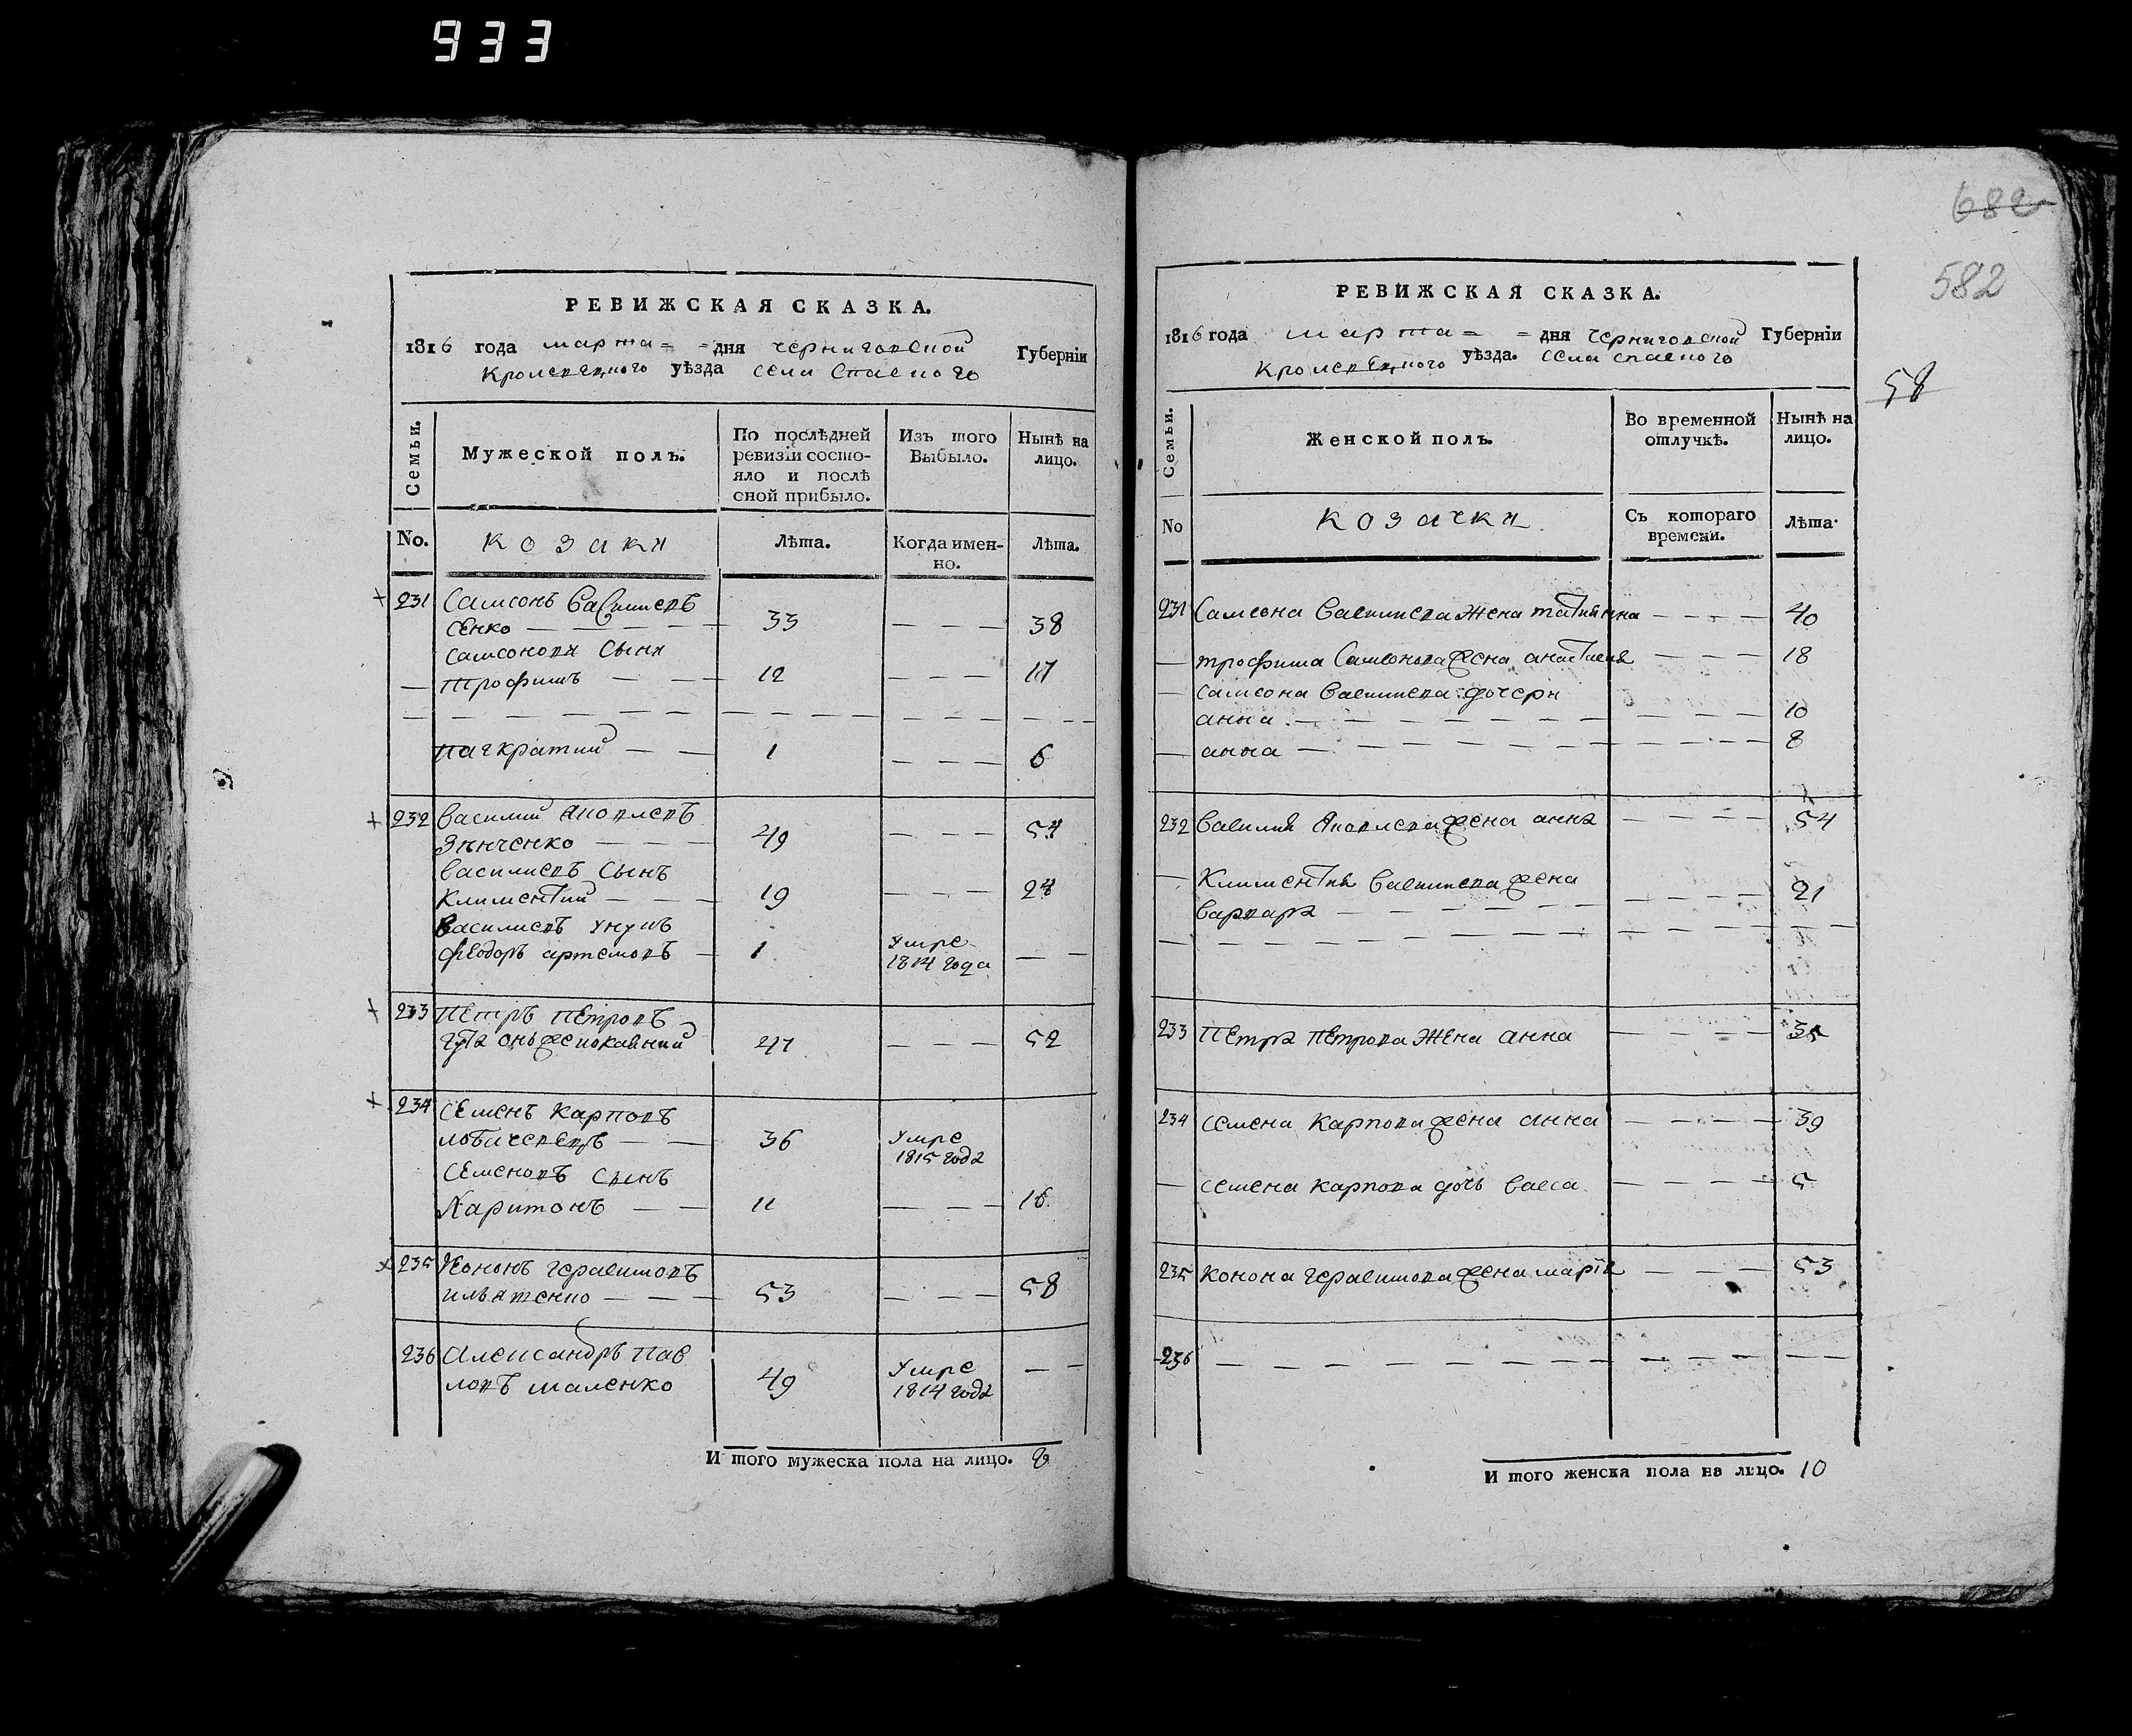 933
РЕВИЖСКАЯ СКАЗКА.
1816 года марта = = дня черниговской Губерніи
Кролевецкого уѣзда села Спаского
Семьи.
Мужеской полъ.
По послѣдней ревизіи состо-
яло и послѣ
оной прибыло.
Изъ того
Выбыло.
Нынѣ на
лицо.
No.
козаки
Лѣта.
Когда имен-
но.
Лѣта.
231 Самсонъ Василиевъ
сенко — — — 33 — — — 38
Самсоновы сыны
— трофимъ — — 12 — — — 17
панкратий — — 1 — — — 6
232 василий яковлевъ
Зѣнченко — — — 49 — — — 54
василиевъ сынъ
климентий — — — 19 — — — 24
василиевъ унукъ
феодоръ артемовъ — 1 умре
1814 года — —
233 Петръ Петровъ
47 — — — 52
234 семенъ карповъ
36 умре
1815 года
семеновъ сынъ
Харитонъ — — 11 — — — 16
235 Кононъ герасимовъ
ильятенко — — — 53 — — — 58
236 Александръ пав
ловъ маленко 49 умре
1814 года — —
И того мужеска пола на лицо. 8
682
582
58
РЕВИЖСКАЯ СКАЗКА.
1816 года марта = = дня черниговской Губерніи
Кролевецкого уѣзда. села спаского
Семьи.
Женской полъ.
Во временной
отлучкѣ.
Нынѣ на
лицо.
No
козачки
Съ котораго
времени.
Лѣта.
231 Самсона василиева жена татиянна — — — — 40
— трофима Самсонова жена анастасия — — — 18
— самсона василиева дочери
анна — — — — — — 10
— анна — — — — — — 8
232 василия яковлева жена анна — — — — 54
— Климентия василиева жена
варвара — — — — — 21
233 Петра Петрова жена анна — — — — 35
234 семена карпова жена анна — — — — 39
— семена карпова дочь васса — — — — 5
235 конона герасимова жена марiя — — — 53
236 — — — — — — — — — — —
И того женска пола на лицо. 10